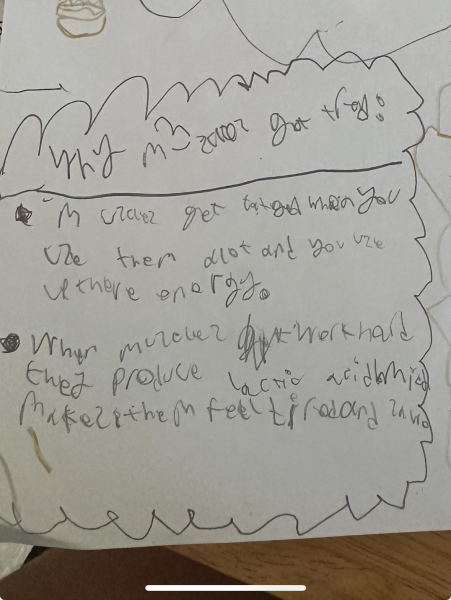 Why muscles get tired:
Muscles get fatigued when you
use them alot and you use
up there enorgy.
When muscles work hard
they produce lactic acid which
makes them feel tired and